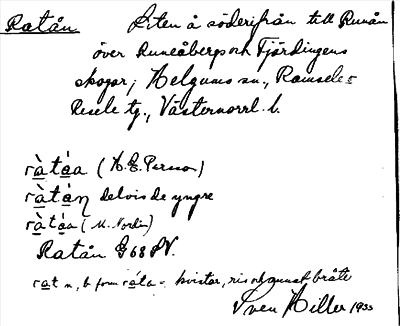 Ratån Liten å söderifrån till Runån
över Runeåbergs och Fjärdingens
skogar; Helgums sn., Ramsele =
Resele tg., Västernorrl. l.
ràtáa (H. E. Persson)
ràtáŋ delvis de yngre
ràtáa (M. Nordin)
Ratån G 68 SV.
rat n, b form ráta = kvistar, ris och annat bråte
Sven Hiller 1933